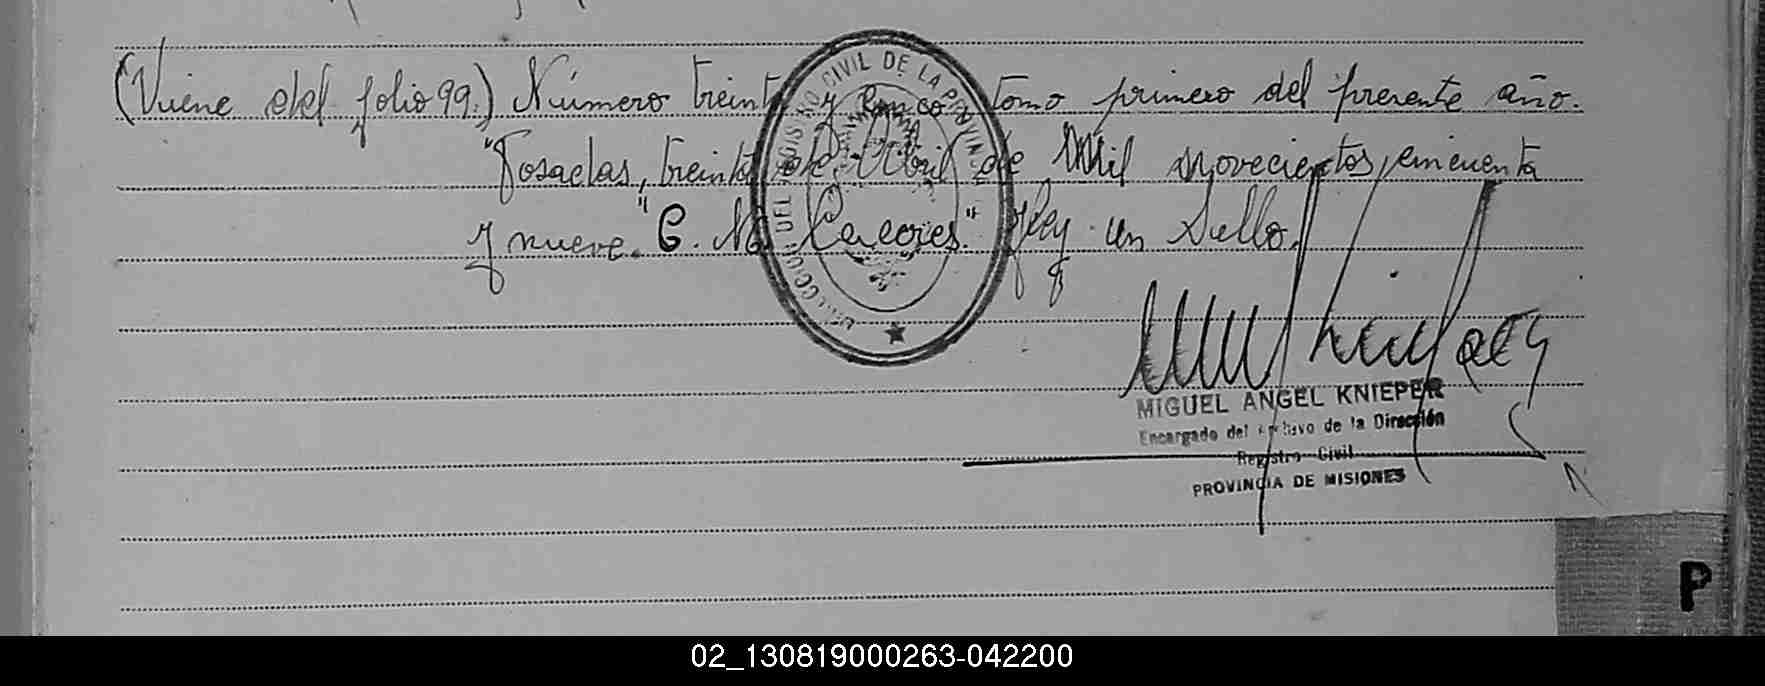 (Viene del folio 99.) Número treinta y cinco tomo primero del presente año.
"Posadas, treinta de Abril de Mil novecientos cincuenta
y nueve." C. M. Caceres." Hay un Sello.
CIVIL DE LA PROVINC
MIGUEL ANGEL KNIEPER
Encargado del Archivo de la Dirección
Registro Civil
PROVINCIA DE MISIONES
P
02_130819000263-042200